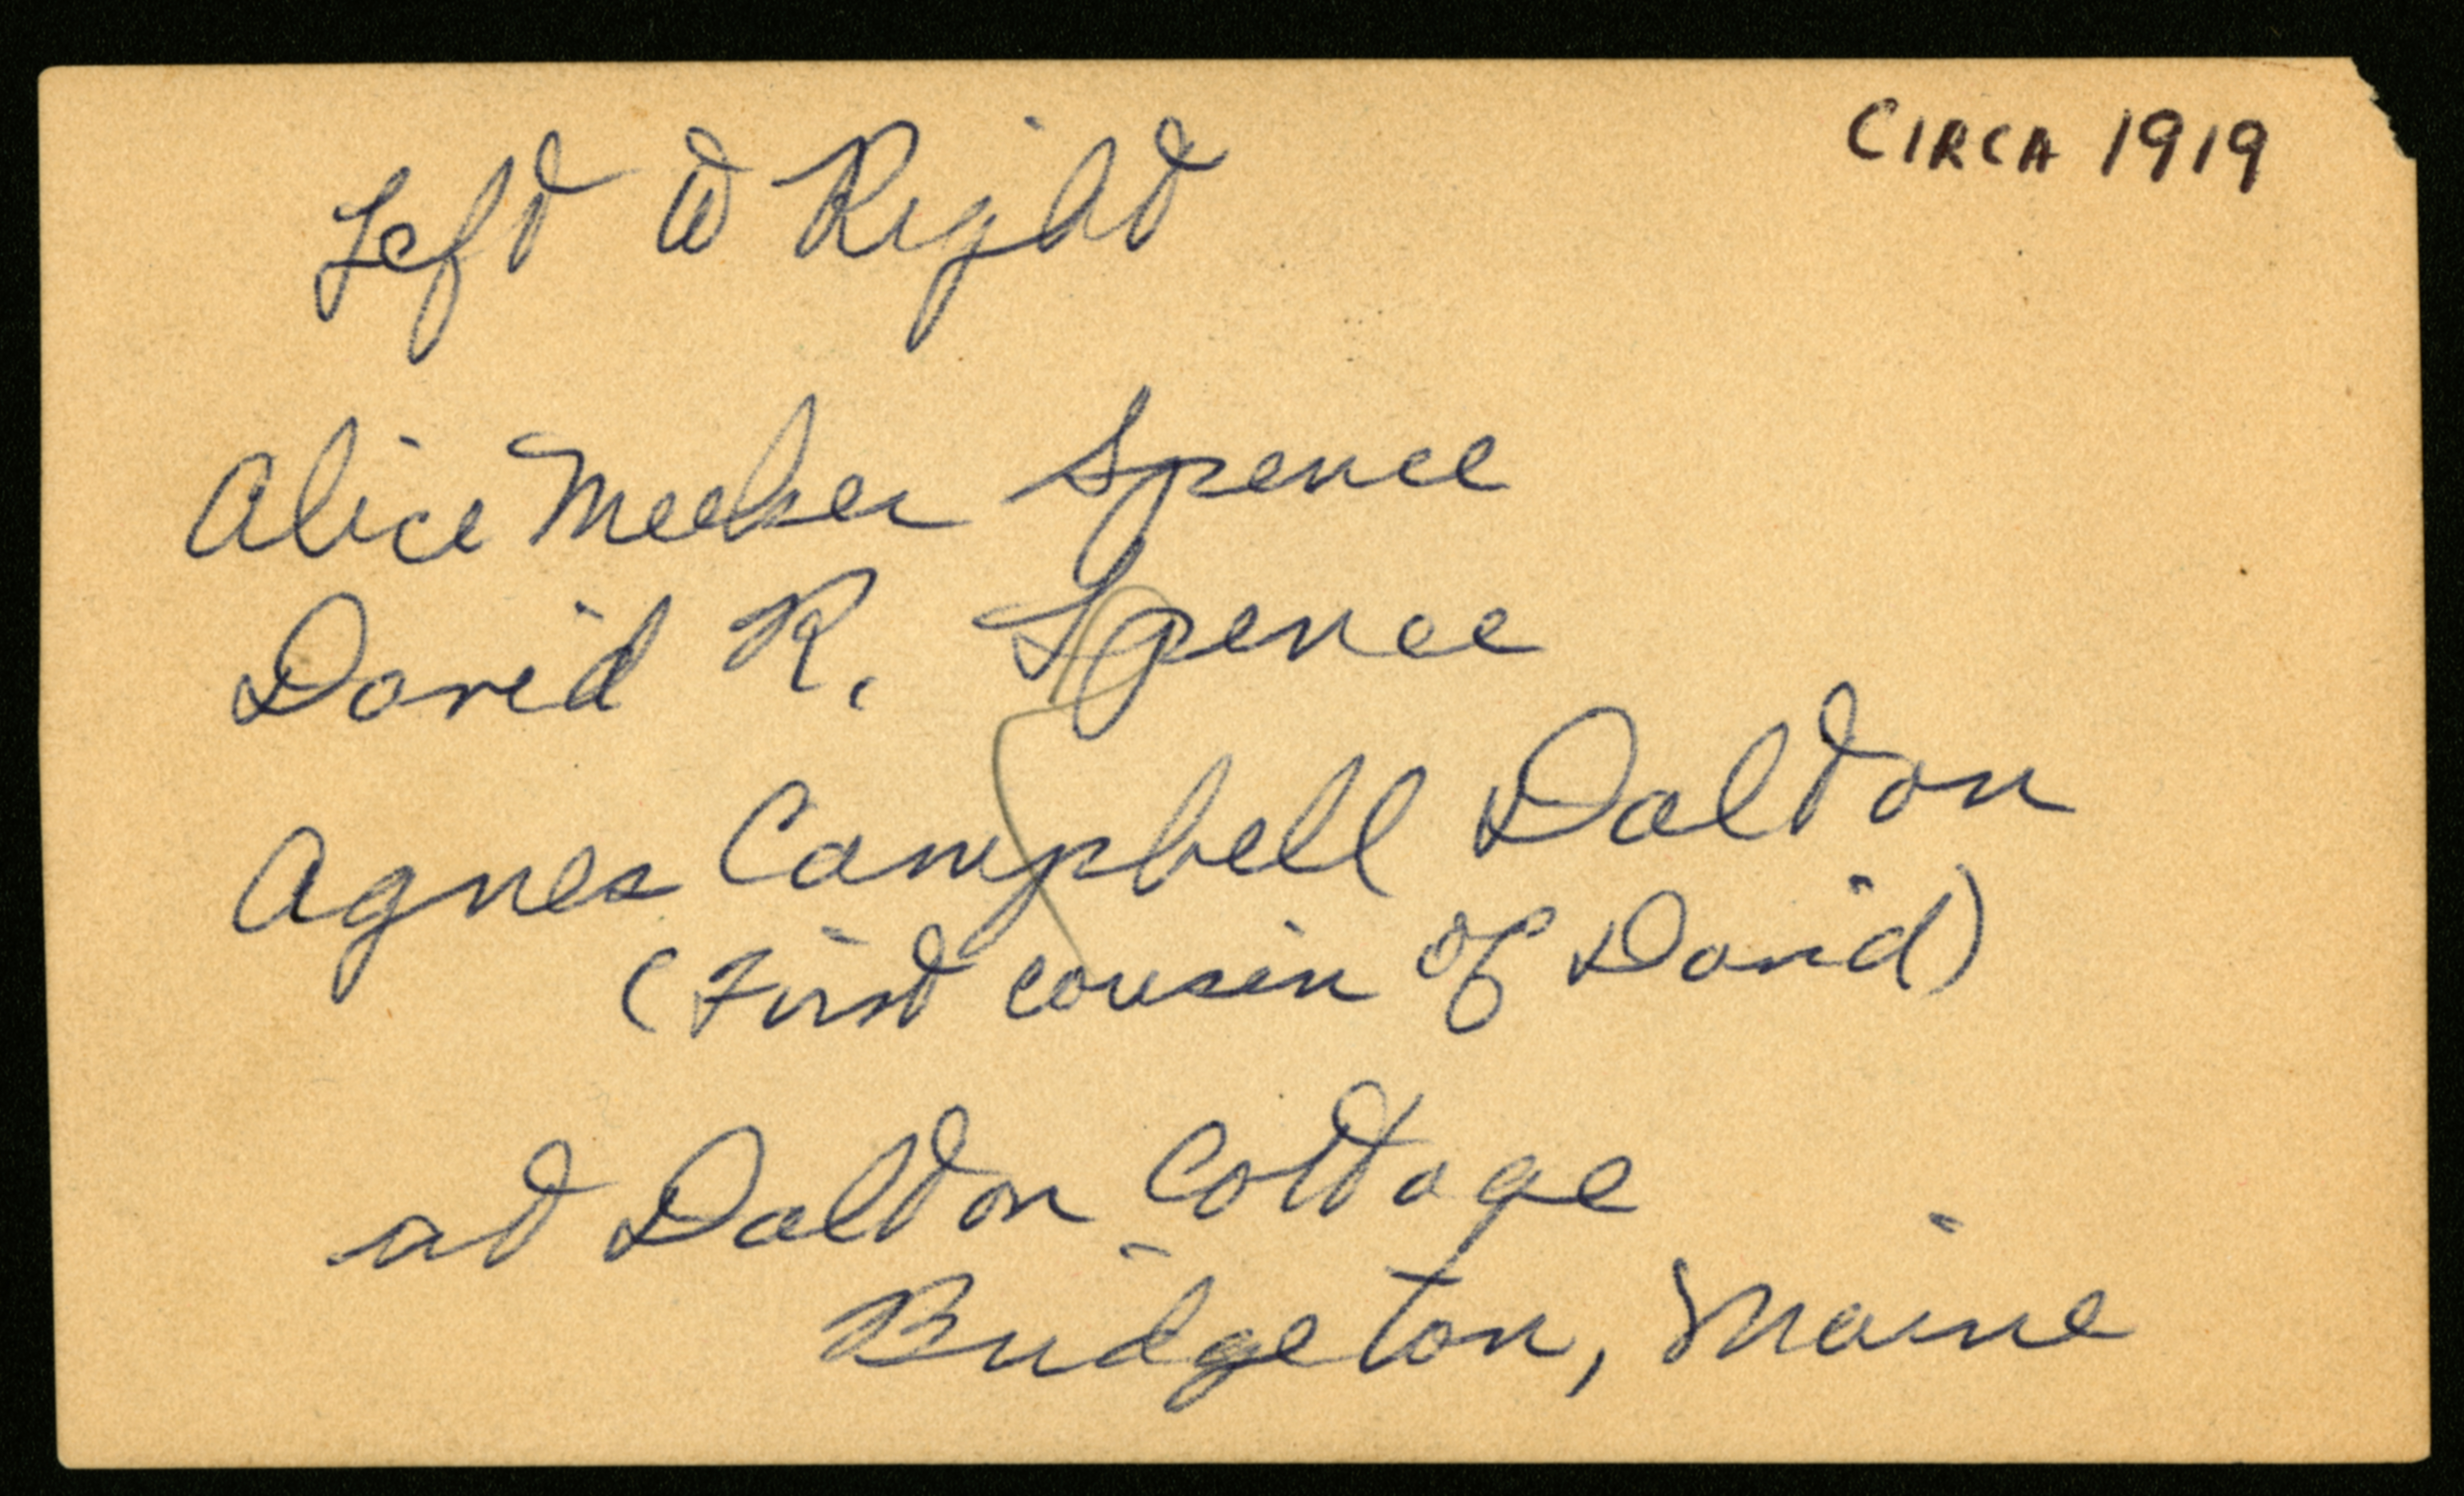 CIRCA 1919
Left to Right
Alice Meeker Spence
David R. Spence
Agnes Campbell Dalton
(First cousin of David)
at Dalton Cottage
Bridgeton, Maine